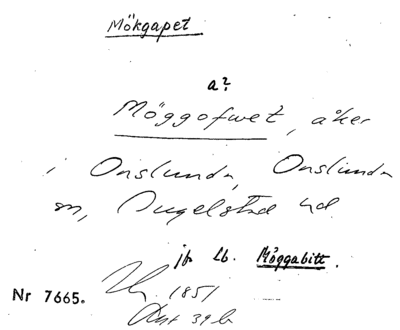 Mökgapet
a?
Möggofwet, åker
i Onslunda, Onslunda
sn, Ingelstad hd.
jfr Lb. Möggabitt.
1851
Akt 39 b
Nr 7665.